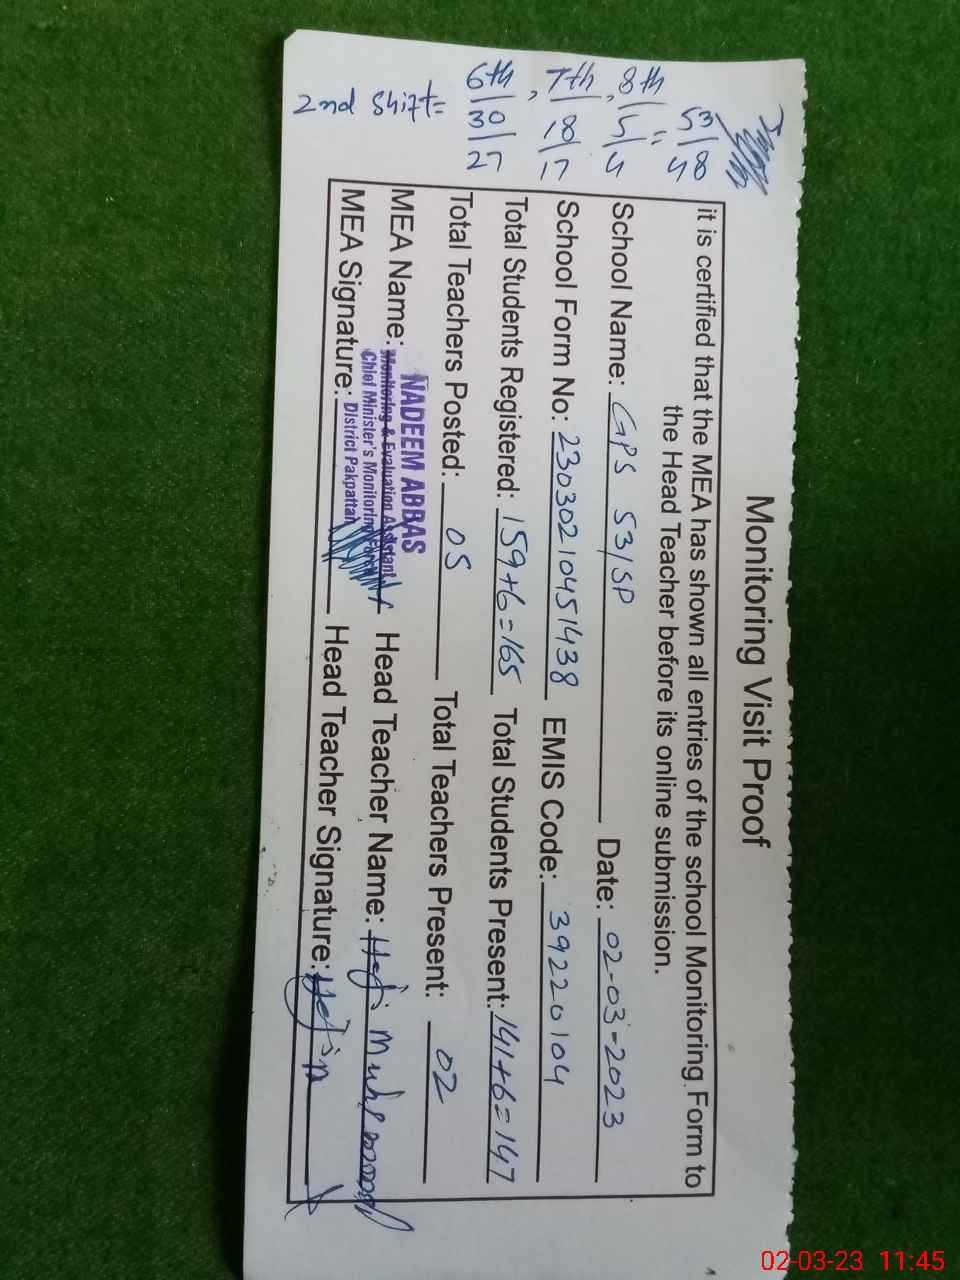 Monitoring Visit Proof
it is certified that the MEA has shown all entries of the school Monitoring Form to
the Head Teacher before its online submission.
School Name: GPS 53/SP Date: 02-03-2023
School Form No: 23030210451438 EMIS Code: 39220104
Total Students Registered: 159+6=165 Total Students Present: 141+6=147
Total Teachers Posted: 05 Total Teachers Present: 02
MEA Name: NADEEM ABBAS Head Teacher Name:
Monitoring & Evaluation Assistant
Chief Minister's Monitoring
District Pakpattan
MEA Signature: Head Teacher Signature:
2nd Shift= 6th/30/27, 7th/18/17, 8th/5/4 = 53/48
02-03-23 11:45